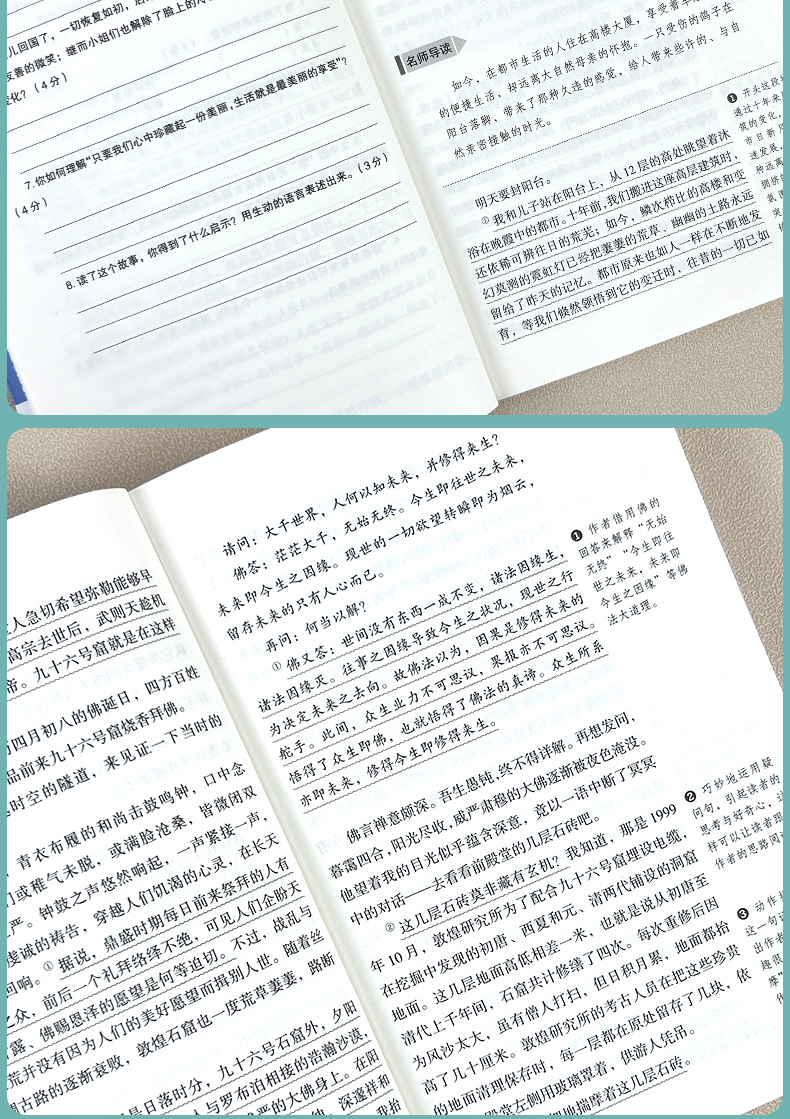 儿回国了，一切恢复如初，后
友善的微笑；继而小姐们也解除了脸上的
变化？（4分）
7.你如何理解“只要我们心中珍藏起一份美丽，生活就是最美丽的享受”？
（4分）
8.读了这个故事，你得到了什么启示？用生动的语言表述出来。（3分）
名师导读
如今，在都市生活的人住在高楼大厦，享受着
的便捷生活，却远离大自然母亲的怀抱。一只受伤的鸽子在
阳台落脚，带来了那种久违的感觉，给人带来些许的、与自
然亲密接触的时光。
明天要封阳台。
①我和儿子站在阳台上，从12层的高处眺望着沐
浴在晚霞中的都市。十年前，我们搬进这座高层建筑时，
还依稀可辨往日的荒芜；如今，鳞次栉比的高楼和变
幻莫测的霓虹灯已经把萋萋的荒草、幽幽的土路永远
留给了昨天的记忆。都市原来也如人一样在不断地发
育，等我们倏然领悟到它的变迁时，往昔的一切已如
❶ 开头这段
通过十年来
筑的变化，
市日新
速发展，
种远离
拥挤
请问：大千世界，人何以知未来，并修得来生？
佛答：茫茫大千，无始无终。今生即往世之未来，
未来即今生之因缘。现世的一切欲望转瞬即为烟云，
留存未来的只有人心而已。
再问：何当以解？
①佛又答：世间没有东西一成不变，诸法因缘生，
诸法因缘灭。往事之因缘导致今生之状况，现世之行
为决定未来之去向。故佛法以为，因果是修得未来的
舵手。此间，众生业力不可思议，果报亦不可思议。
悟得了众生即佛，也就悟得了佛法的真谛。众生所系
亦即未来，修得今生即修得来生。
佛言禅意颇深。吾生愚钝，终不得详解。再想发问，
暮霭四合，阳光尽收，威严肃穆的大佛逐渐被夜色淹没。
他望着我的目光似乎蕴含深意，竟以一语中断了冥冥
中的对话——去看看前殿堂的几层石砖吧。
②这几层石砖莫非藏有玄机？我知道，那是1999
年10月，敦煌研究所为了配合九十六号窟埋设电缆，
在挖掘中发现的初唐、西夏和元、清两代铺设的洞窟
地面。这几层地面高低相差一米，也就是说从初唐至
清代上千年间，石窟共计修缮了四次。每次重修后因
为风沙太大，虽有僧人打扫，但日积月累，地面都抬
高了几十厘米。敦煌研究所的考古人员在把这些珍贵
的地面清理保存时，每一层都在原处留存了几块，依
殿堂左侧用玻璃罩着，供游人凭吊。
地揣摩着这几层石砖。
❶ 作者借用佛的
回答来解释“无始
无终”“今生即往
世之未来，未来即
今生之因缘”等佛
法大道理。
❷ 巧妙地运用疑
问句，引起读者的
思考与好奇心，让
样可以让读者
作者的思路阅
❸ 动作
这一句
出作者
趣很
摩”
人急切希望弥勒能够早
高宗去世后，武则天趁机
帝。九十六号窟就是在这样
四月初八的佛诞日，四方百姓
品前来九十六号窟烧香拜佛。
时空的隧道，来见证一下当时的
，青衣布履的和尚击鼓鸣钟，口中念
们或稚气未脱，或满脸沧桑，皆微闭双
严。钟鼓之声悠然响起，一声紧接一声，
虔诚的祷告，穿越人们饥渴的心灵，在长天
回响。①据说，鼎盛时期每日前来祭拜的人有
之众，前后一个礼拜络绎不绝，可见人们企盼天
露、佛赐恩泽的愿望是何等迫切。不过，战乱与
荒并没有因为人们的美好愿望而揖别人世。随着丝
绸古路的逐渐衰败，敦煌石窟也一度荒草萋萋，路断
是日落时分，九十六号石窟外，夕阳
人与罗布泊相接的浩瀚沙漠，
严的大佛身上。在阳
，深邃祥和